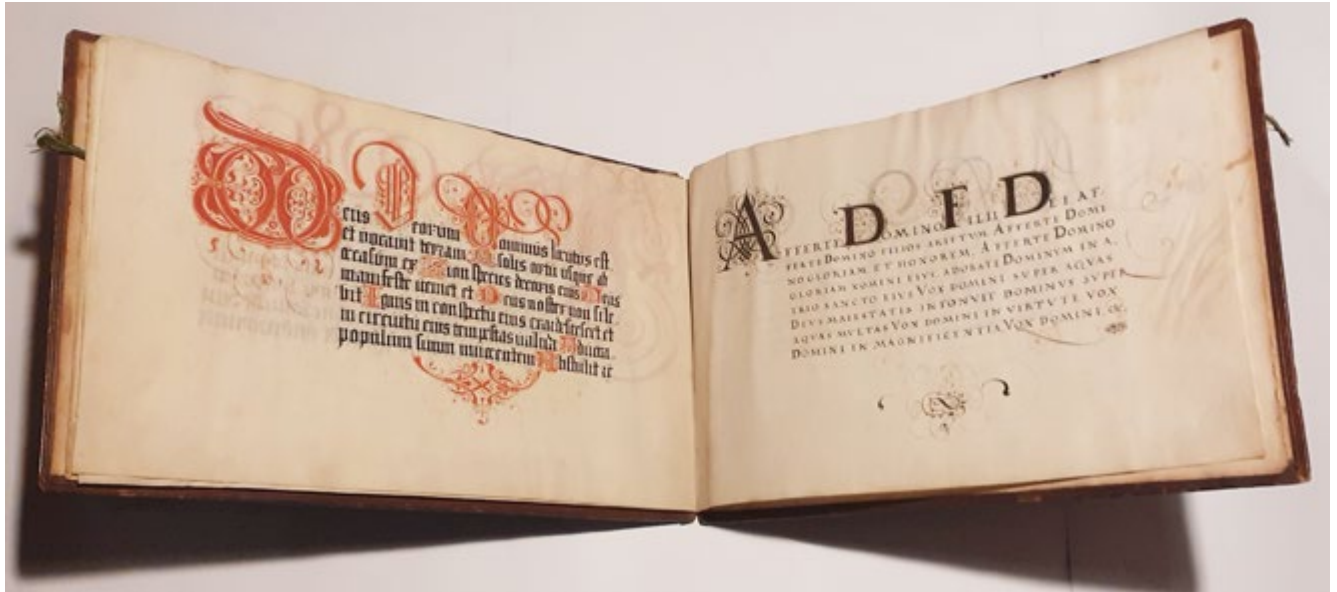 Deus Deorum Dominus locutus est
et vocavit terram A solis ortu usque ad
occasum ex Sion species decoris eius Deus
manifeste veniet et Deus noster non sile-
bit Ignis in conspectu eius exardescet et
in circuitu eius tempestas valida Adduca..
populum suum
AFFERTE DOMINO FILII DEI AF-
FERTE DOMINO FILIOS ARIETVM. AFFERTE DOMI
NO GLORIAM, ET HONOREM, AFFERTE DOMINO
GLORIAM NOMINI EIVS, ADORATE DOMINVM IN A,
TRIO SANCTO EIVS VOX DOMINI SVPER AQVAS
DEVS MAIESTATIS INTONVIT DOMINVS SVPER
AQVAS MVLTAS VOX DOMINI IN VIRTVTE VOX
DOMINI IN MAGNIFICENTIA VOX DOMINI &,